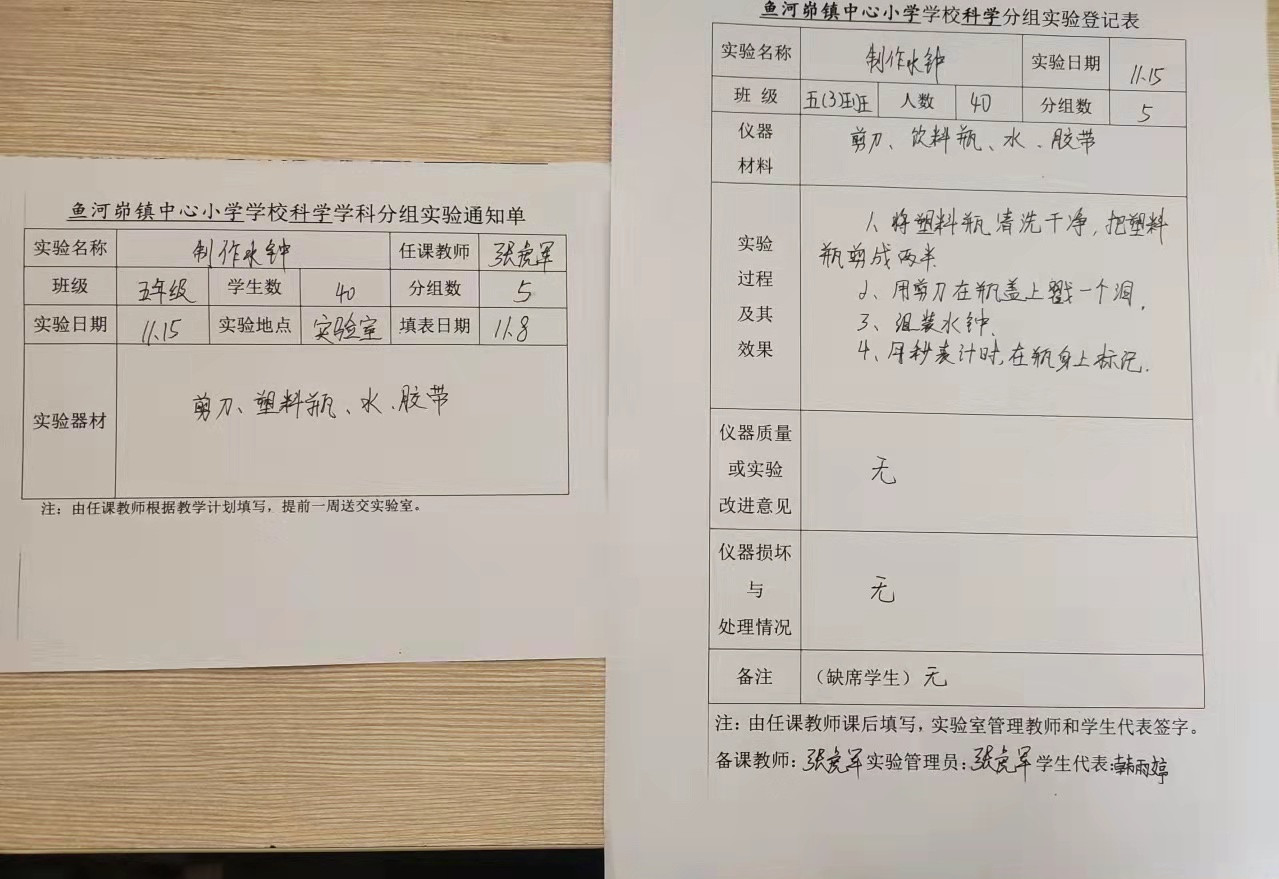 鱼河峁镇中心小学学校科学学科分组实验通知单
实验名称 制作水钟 任课教师 张虎军
班级 五年级 学生数 40 分组数 5
实验日期 11.15 实验地点 实验室 填表日期 11.8
实验器材 剪刀、塑料瓶、水、胶带
注：由任课教师根据教学计划填写，提前一周送交实验室。
鱼河峁镇中心小学学校科学分组实验登记表
实验名称 制作水钟 实验日期 11.15
班 级 五(3)班 人数 40 分组数 5
仪器
材料
剪刀、饮料瓶、水、胶带
实验
过程
及其
效果
1、将塑料瓶清洗干净，把塑料
瓶剪成两半.
2、用剪刀在瓶盖上戳一个洞.
3、组装水钟.
4、用秒表计时,在瓶身上标记.
仪器质量
或实验
改进意见
无
仪器损坏
与
处理情况
无
备注 （缺席学生）无
注：由任课教师课后填写，实验室管理教师和学生代表签字。
备课教师：张虎军 实验管理员：张虎军 学生代表：韩雨婷